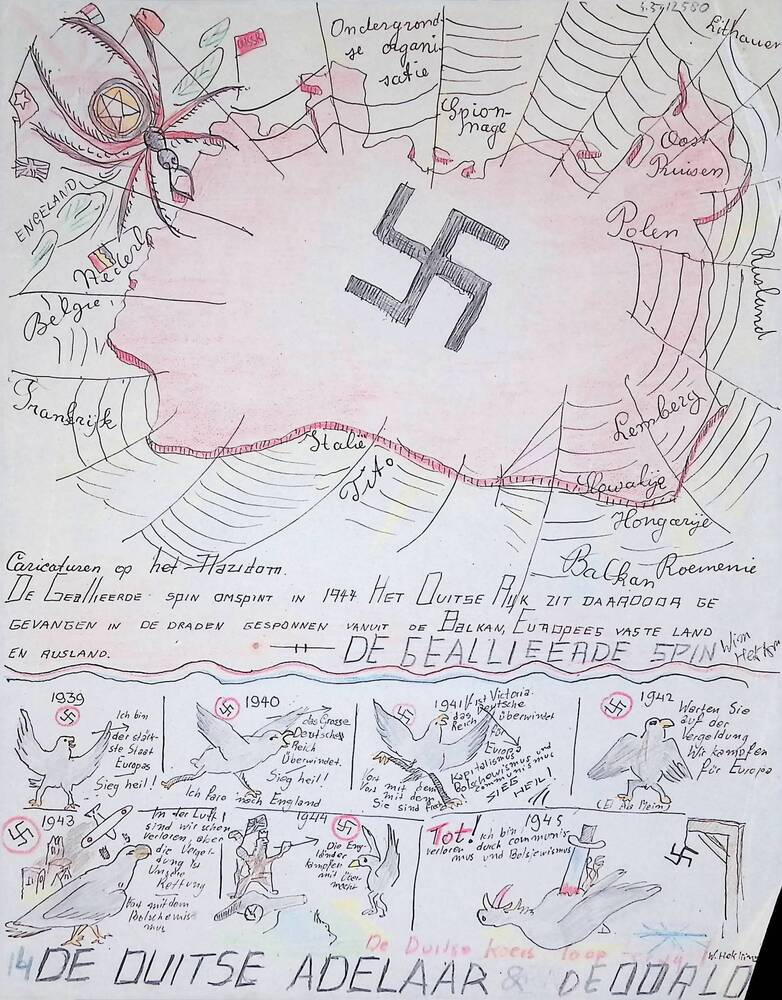 5.5.12580
Ondergrond-
se organi
satie
Spion-
nage
Lithauen
Oost
Pruisen
Polen
Rusland
USSR
ENGELAND
Nederl
België
Frankrijk
Italië
Tito
Lemberg
Slowakije
Hongarije
Balkan
Roemenie
Caricaturen op het Nazidom.
DE GEALLIEERDE SPIN OMSPINT IN 1944 HET DUITSE RIJK ZIT DAARDOOR GE
GEVANGEN IN DE DRADEN GESPONNEN VANUIT DE BALKAN, EUROPEES VASTE LAND
EN RUSLAND.
DE GEALLIEERDE SPIN
Wim
Hekker
1939
Ich bin
der stärk-
ste Staat
Europas
Sieg heil!
1940
das Grosse
Deutsche
Reich
Überwindet.
Sieg heil!
nach England
1941
ist Victoria.
das Deutsche
Reich überwindet
für
Europa
Kapitalismus und
Bolschewismus und
communismus
SIEG HEIL!
Fort mit dem
Fort mit dem
Sie sind
1942
Warten Sie
auf der
Vergeldung
Wir kampfen
für Europa
1943
In der Luft!
sind wir schon
verloren, aber
die Vergel-
dung ist
Unsere
Rettung
Fort mit dem
Bolschewis
mus
1944
Die Eng-
länder
kämpfen
mit über
macht
1945
Tot!
Ich bin
verloren durch communis
mus und Bolsjewismus
De Duitse koers loop
W. Hek
14 DE DUITSE ADELAAR & DE OORLO